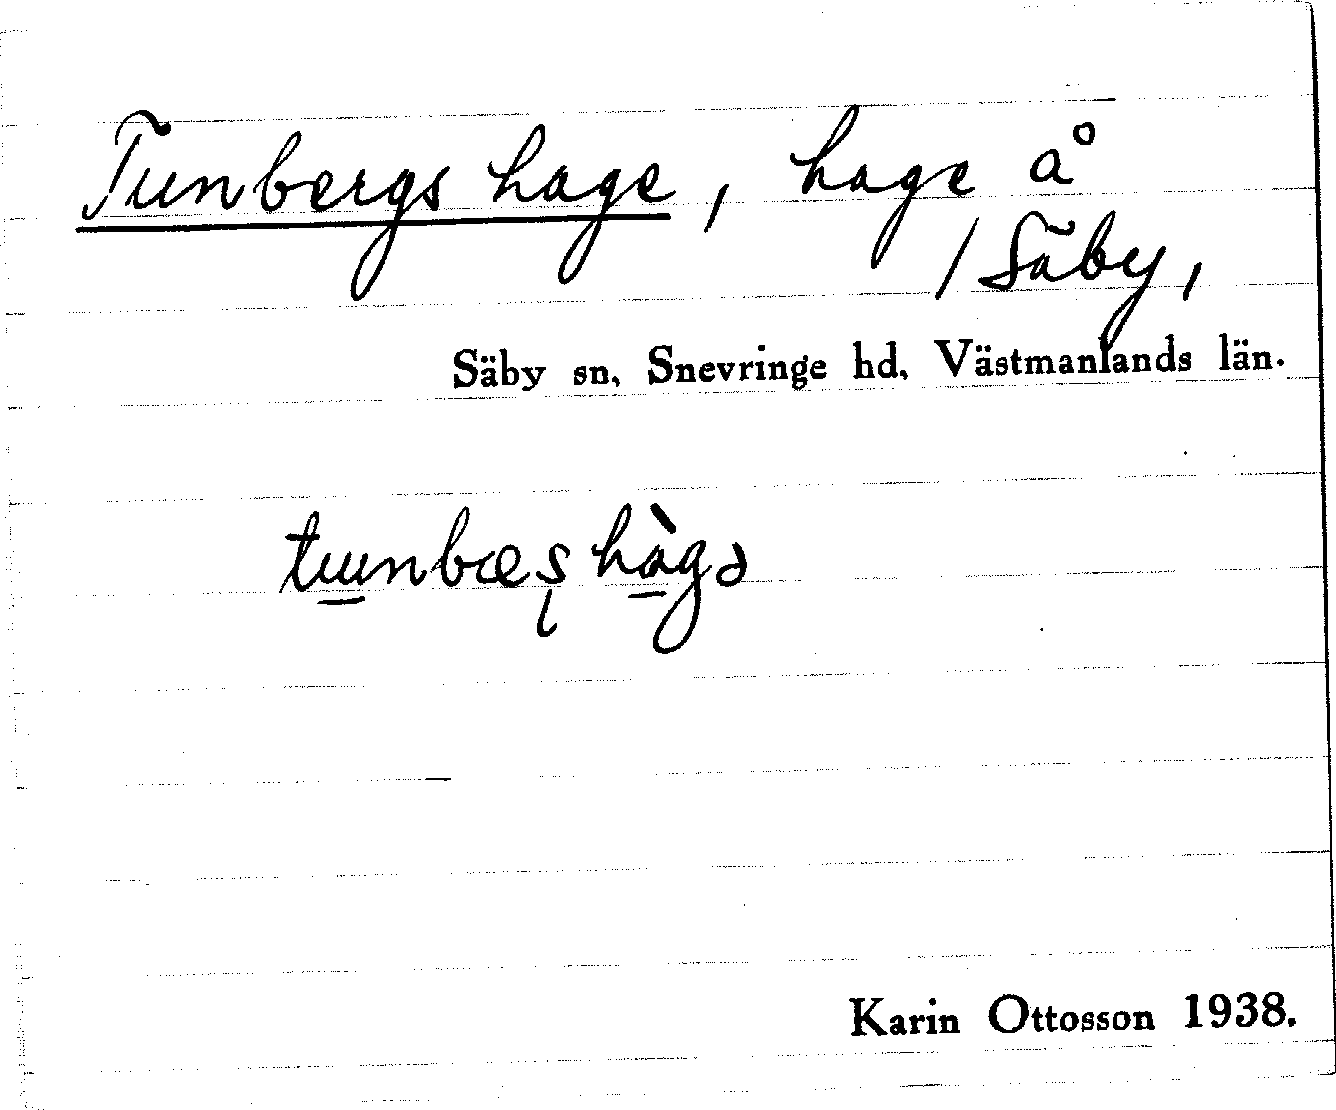 Tunbergs hage, hage å
/ Säby,
Säby sn, Snevringe hd, Västmanlands län.
tuunbæʂ hàgə
Karin Ottosson 1938.